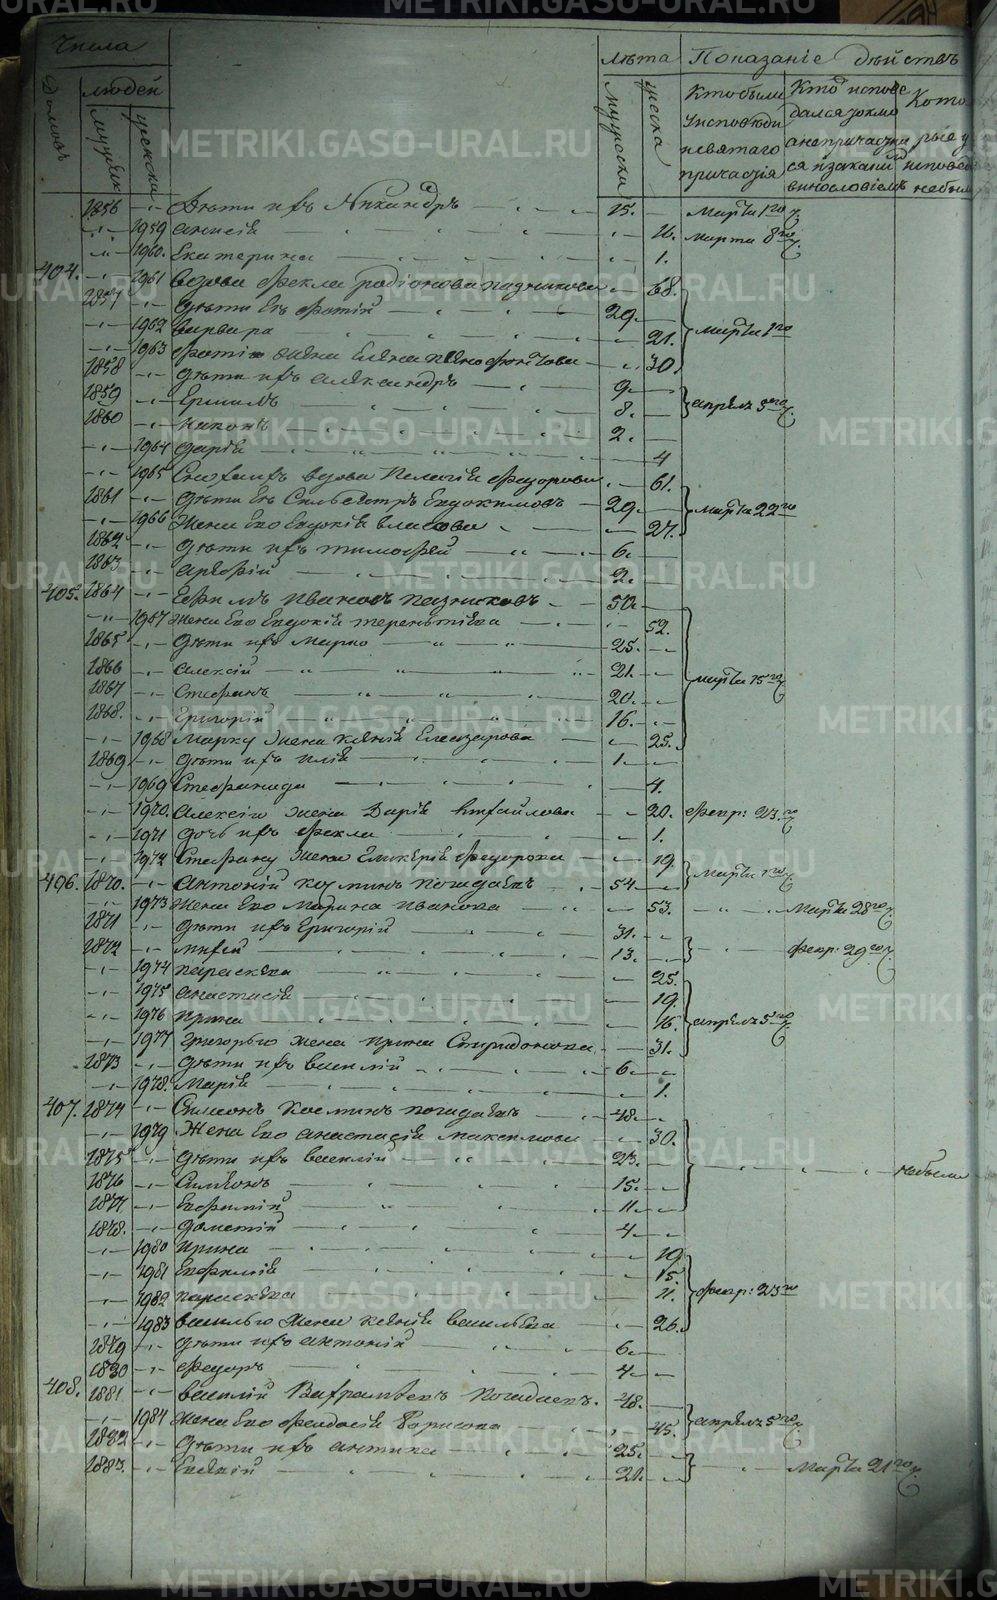 Числа
лѣта Показаніе дѣйствъ
Домовъ людей мужеск женски
мужеска женска
Кто были у исповѣди и святаго причастія
Кто исповедался токмо а не причастился и за какимъ винословіемъ
Которые у исповеди не были
1856 Дѣти ихъ Никандръ 15. Марта 1го
1959 Анисія 11. Марта 8го
1960. Екатерина 1.
404. 1961 Вдова Фекла Родіонова 68.
1857 Дѣти Ея Фотій 29. Марта 1го
1962 Варвара 21.
1963 Фотію жена Елена 30.
1858 Дѣти ихъ Александръ 9.
1859 Ермилъ 8. Апрѣля 5го
1860 Никонъ 2.
1964 Дарія 4
1965 Вдова Пелагія Федорова 61.
1861 Дѣти Ея Сильвестръ Евдокимовъ 29. Марта 22го
1966 Жена Его Евдокія Власова 27.
1862 Дѣти ихъ Тимофей 6.
1863 Арефій 2.
405. 1864 Ефимъ Ивановъ 50.
1967 Жена Его Евдокія Терентіева 52.
1865 Дѣти ихъ Марко 25.
1866 Алексій 21. Марта 15го
1867 Стефанъ 20.
1868. Григорій 16.
1968 Марку жена Ксенія Елеазарова 25.
1869 Дѣти ихъ Илія 1.
1969 Стефанида 4.
1970. Алексію жена Дарія 20. Февр: 23.го
1971 Дочь ихъ Фекла 1.
1972 Стефану жена Гликерія Федорова 19. Марта 1го
406. 1870. Антоній Козминъ Погадаевъ 54
1973 Жена Его Марина Иванова 53. Марта 28го
1871 Дѣти ихъ Григорій 31.
1872 13. Февр: 29го
1974 Параскева 25.
1975 Анастасія 19.
1976 Ирина 16. Апрѣля 5го
1977 Григорью жена Ирина Спиридонова 31.
1873 Дѣти ихъ Василій 6.
1978. Марія 1.
407. 1874 Симеонъ Косминъ Погадаевъ 48.
1979 Жена Его Анастасія Максимова 30.
1875 Дѣти ихъ Василій 23. небыли
1876 Симеонъ 15.
1877 Евфимій 11.
1878. Дометій 4
1980 Ирина 19
1981 Евфимія 15.
1982 Параскева 11. Февр: 23го
1983 Василью жена Ксенія Васильева 26.
1879 Дѣти ихъ Антоній 6.
1880 Федоръ 4
408. 1881 Василій Погадаевъ. 48.
1984 Жена Его Феодосія Борисова 45. Апрѣля 5го
1882 Дѣти ихъ Антипа 25.
1883. 21. Марта 21го
METRIKI.GASO-URAL.RU